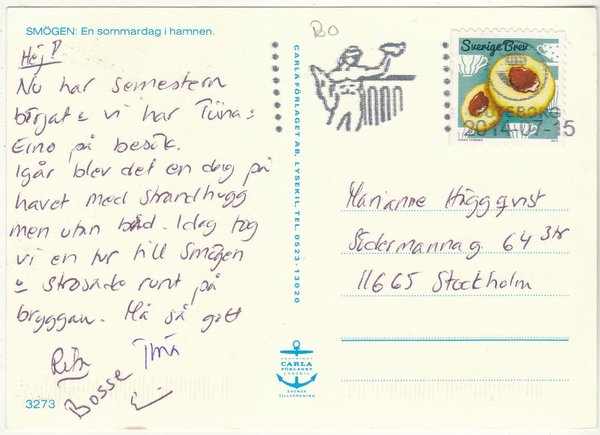 SMÖGEN: En sommardag i hamnen.
Hej!
Nu har semestern
börjat & vi har Tiina &
Eino på besök.
Igår blev det en dag på
havet med strandhugg
men utan båd. Idag tog
vi en tur till Smögen
& strosade runt på
bryggan. Må så gott
Rita Tiina
Bosse
3273
CARLA FÖRLAGET AB, LYSEKIL, TEL. 0523-13020
CARLA
FÖRLAGET
LYSEKIL
SVENSK
TILLVERKNING
BO
Sverige Brev
GÖTEBORG
2014-07-15
Marianne Häggqvist
Södermannag. 64 3tr
11665 Stockholm